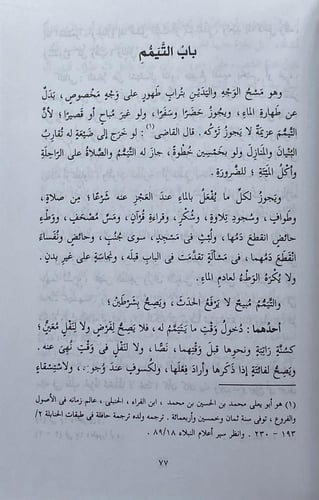 بابُ التَّيَمُّم
وهو مَسْحُ الوَجْهِ واليَدَيْنِ بتُرابٍ طَهُورٍ على وَجْهٍ مَخْصوصٍ، بَدَلٌ
عن طهارةِ الماءِ، ويجوزُ حَضَرًا وسَفَرًا، ولو غيرَ مُباحٍ أو قصيرًا؛ لأنَّ
التَّيَمُّمَ عزيمةٌ لا يَجوزُ تَرْكُه. قال القاضي(١): لو خرَج إلى ضَيْعةٍ له تُقارِبُ
البُنْيانَ والمَنازِلَ ولو بخَمْسِين خُطْوةً، جازَ له التَّيَمُّمُ والصَّلاةُ على الرَّاحِلةِ
وأَكْلُ المَيْتةِ؛ للضَّرورةِ.
ويَجوزُ لكلِّ ما يُفْعَلُ بالماءِ عندَ العَجْزِ عنه شَرْعًا؛ مِن صلاةٍ،
وطَوافٍ، وسُجودِ تِلاوةٍ، وشُكْرٍ، وقراءةِ قُرآنٍ، ومَسِّ مُصْحَفٍ، ووَطْءِ
حائضٍ انقطَع دَمُها، ولُبْثٍ في مَسْجِدٍ، سوى جُنُبٍ، وحائضٍ ونُفَساءَ
انقَطَع دَمُهما، في مَسْألةٍ تقدَّمَت في البابِ قبلَه، ونجاسةٍ على غيرِ بدنٍ.
ولا يُكْرَهُ الوَطْءُ لعادمِ الماءِ.
والتَّيَمُّمُ مُبِيحٌ لا يَرْفَعُ الحَدَثَ، ويَصِحُّ بشَرْطَيْن؛
أحدُهما: دُخولُ وَقْتِ ما يَتَيَمَّمُ له، فلا يَصِحُّ لفَرْضٍ ولا لنَفْلٍ مُعَيَّنٍ؛
كسُنَّةٍ راتِبَةٍ ونحوِها قبلَ وَقْتِهما، نَصًّا، ولا لنَفْلٍ في وَقْتِ نَهْيٍ عنه.
ويَصِحُّ لفائتةٍ إذا ذكَرها وأرادَ فِعْلَها، ولكُسوفٍ عندَ وُجودِه، ولاسْتِسْقاءٍ
(١) هو أبو يعلى محمد بن الحسين بن محمد، ابن الفراء، الحنبلي، عالم زمانه في الأصول
والفروع، توفى سنة ثمان وخمسين وأربعمائة. ترجمه ولده ترجمة حافلة في طبقات الحنابلة ٢/
١٩٣ - ٢٣٠. وانظر سير أعلام النبلاء ٨٩/١٨.
٧٧